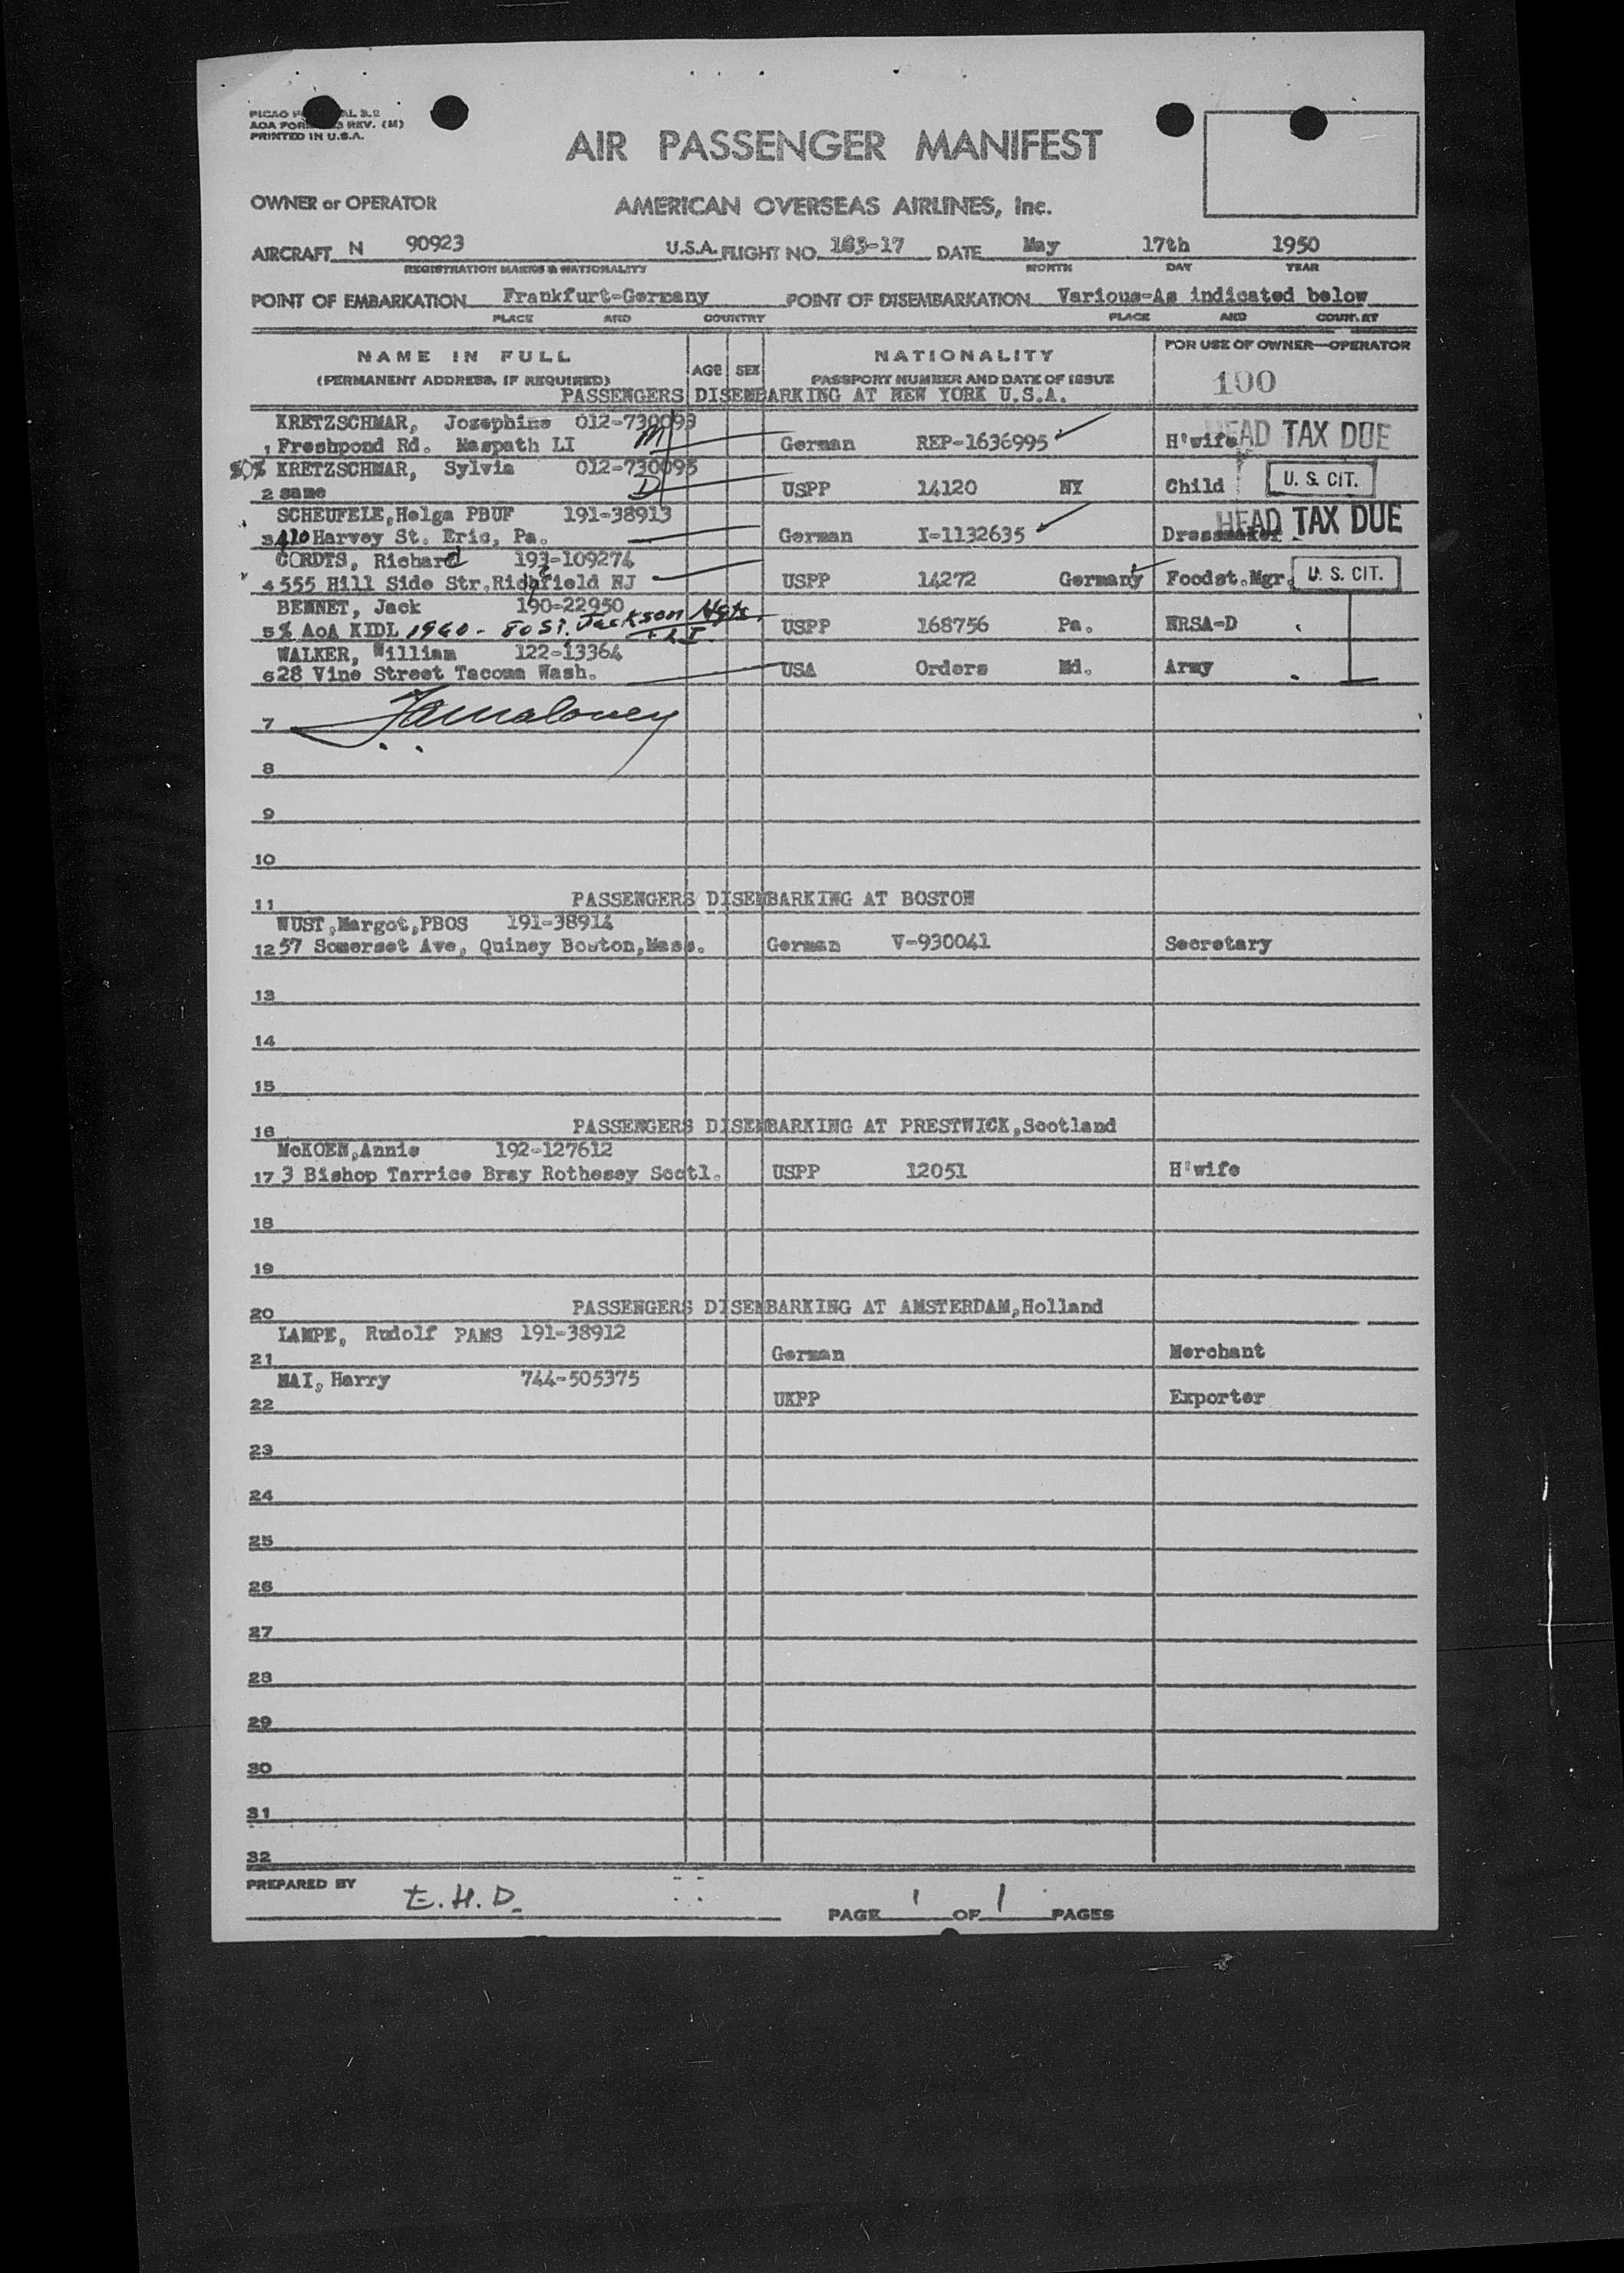 PICAO AL 3.2
AOA REV. (M)
PRINTED IN U.S.A.
AIR PASSENGER MANIFEST
OWNER or OPERATOR AMERICAN OVERSEAS AIRLINES, Inc.
AIRCRAFT N 90923 U.S.A. FLIGHT NO. 163-17 DATE May 17th 1950
REGISTRATION MARKS & NATIONALITY MONTH DAY YEAR
POINT OF EMBARKATION Frankfurt-Germany POINT OF DISEMBARKATION Various-As indicated below
PLACE AND COUNTRY PLACE AND COUNTRY
NAME IN FULL AGE SEX NATIONALITY FOR USE OF OWNER—OPERATOR
(PERMANENT ADDRESS, IF REQUIRED) PASSPORT NUMBER AND DATE OF ISSUE 100
PASSENGERS DISEMBARKING AT NEW YORK U.S.A.
KRETZSCHMAR, Josephine 012-730093
1 Freshpond Rd. Maspath LI M German REP-1636995 H'wife HEAD TAX DUE
50% KRETZSCHMAR, Sylvia 012-730095
2 same D USPP 14120 NY Child U. S. CIT.
SCHEUFELE,Helga PBUF 191-38913
3 410 Harvey St. Eric, Pa. German I-1132635 Dressmaker HEAD TAX DUE
CORDTS, Richard 193-109274
4 555 Hill Side Str.Richfield NJ USPP 14272 Germany Foodst.Mgr. U. S. CIT.
BENNET, Jack 190-22950
5 % AoA KIDL 1960 - 80 St. Jackson Hgts. L I USPP 168756 Pa. NRSA-D
WALKER, William 122-13364
6 28 Vine Street Tacoma Wash. USA Orders Md. Army
7
8
9
10
11 PASSENGERS DISEMBARKING AT BOSTON
WUST,Margot,PBOS 191-38914
12 57 Somerset Ave, Quincy Boston,Mass. German V-930041 Secretary
13
14
15
16 PASSENGERS DISEMBARKING AT PRESTWICK,Scotland
McKOEN,Annie 192-127612
17 3 Bishop Tarrice Bray Rothesey Scotl. USPP 12051 H'wife
18
19
20 PASSENGERS DISEMBARKING AT AMSTERDAM,Holland
LAMPE, Rudolf PAMS 191-38912
21 German Merchant
MAI, Harry 744-505375
22 UKPP Exporter
23
24
25
26
27
28
29
30
31
32
PREPARED BY E.H.D. PAGE 1 OF 1 PAGES